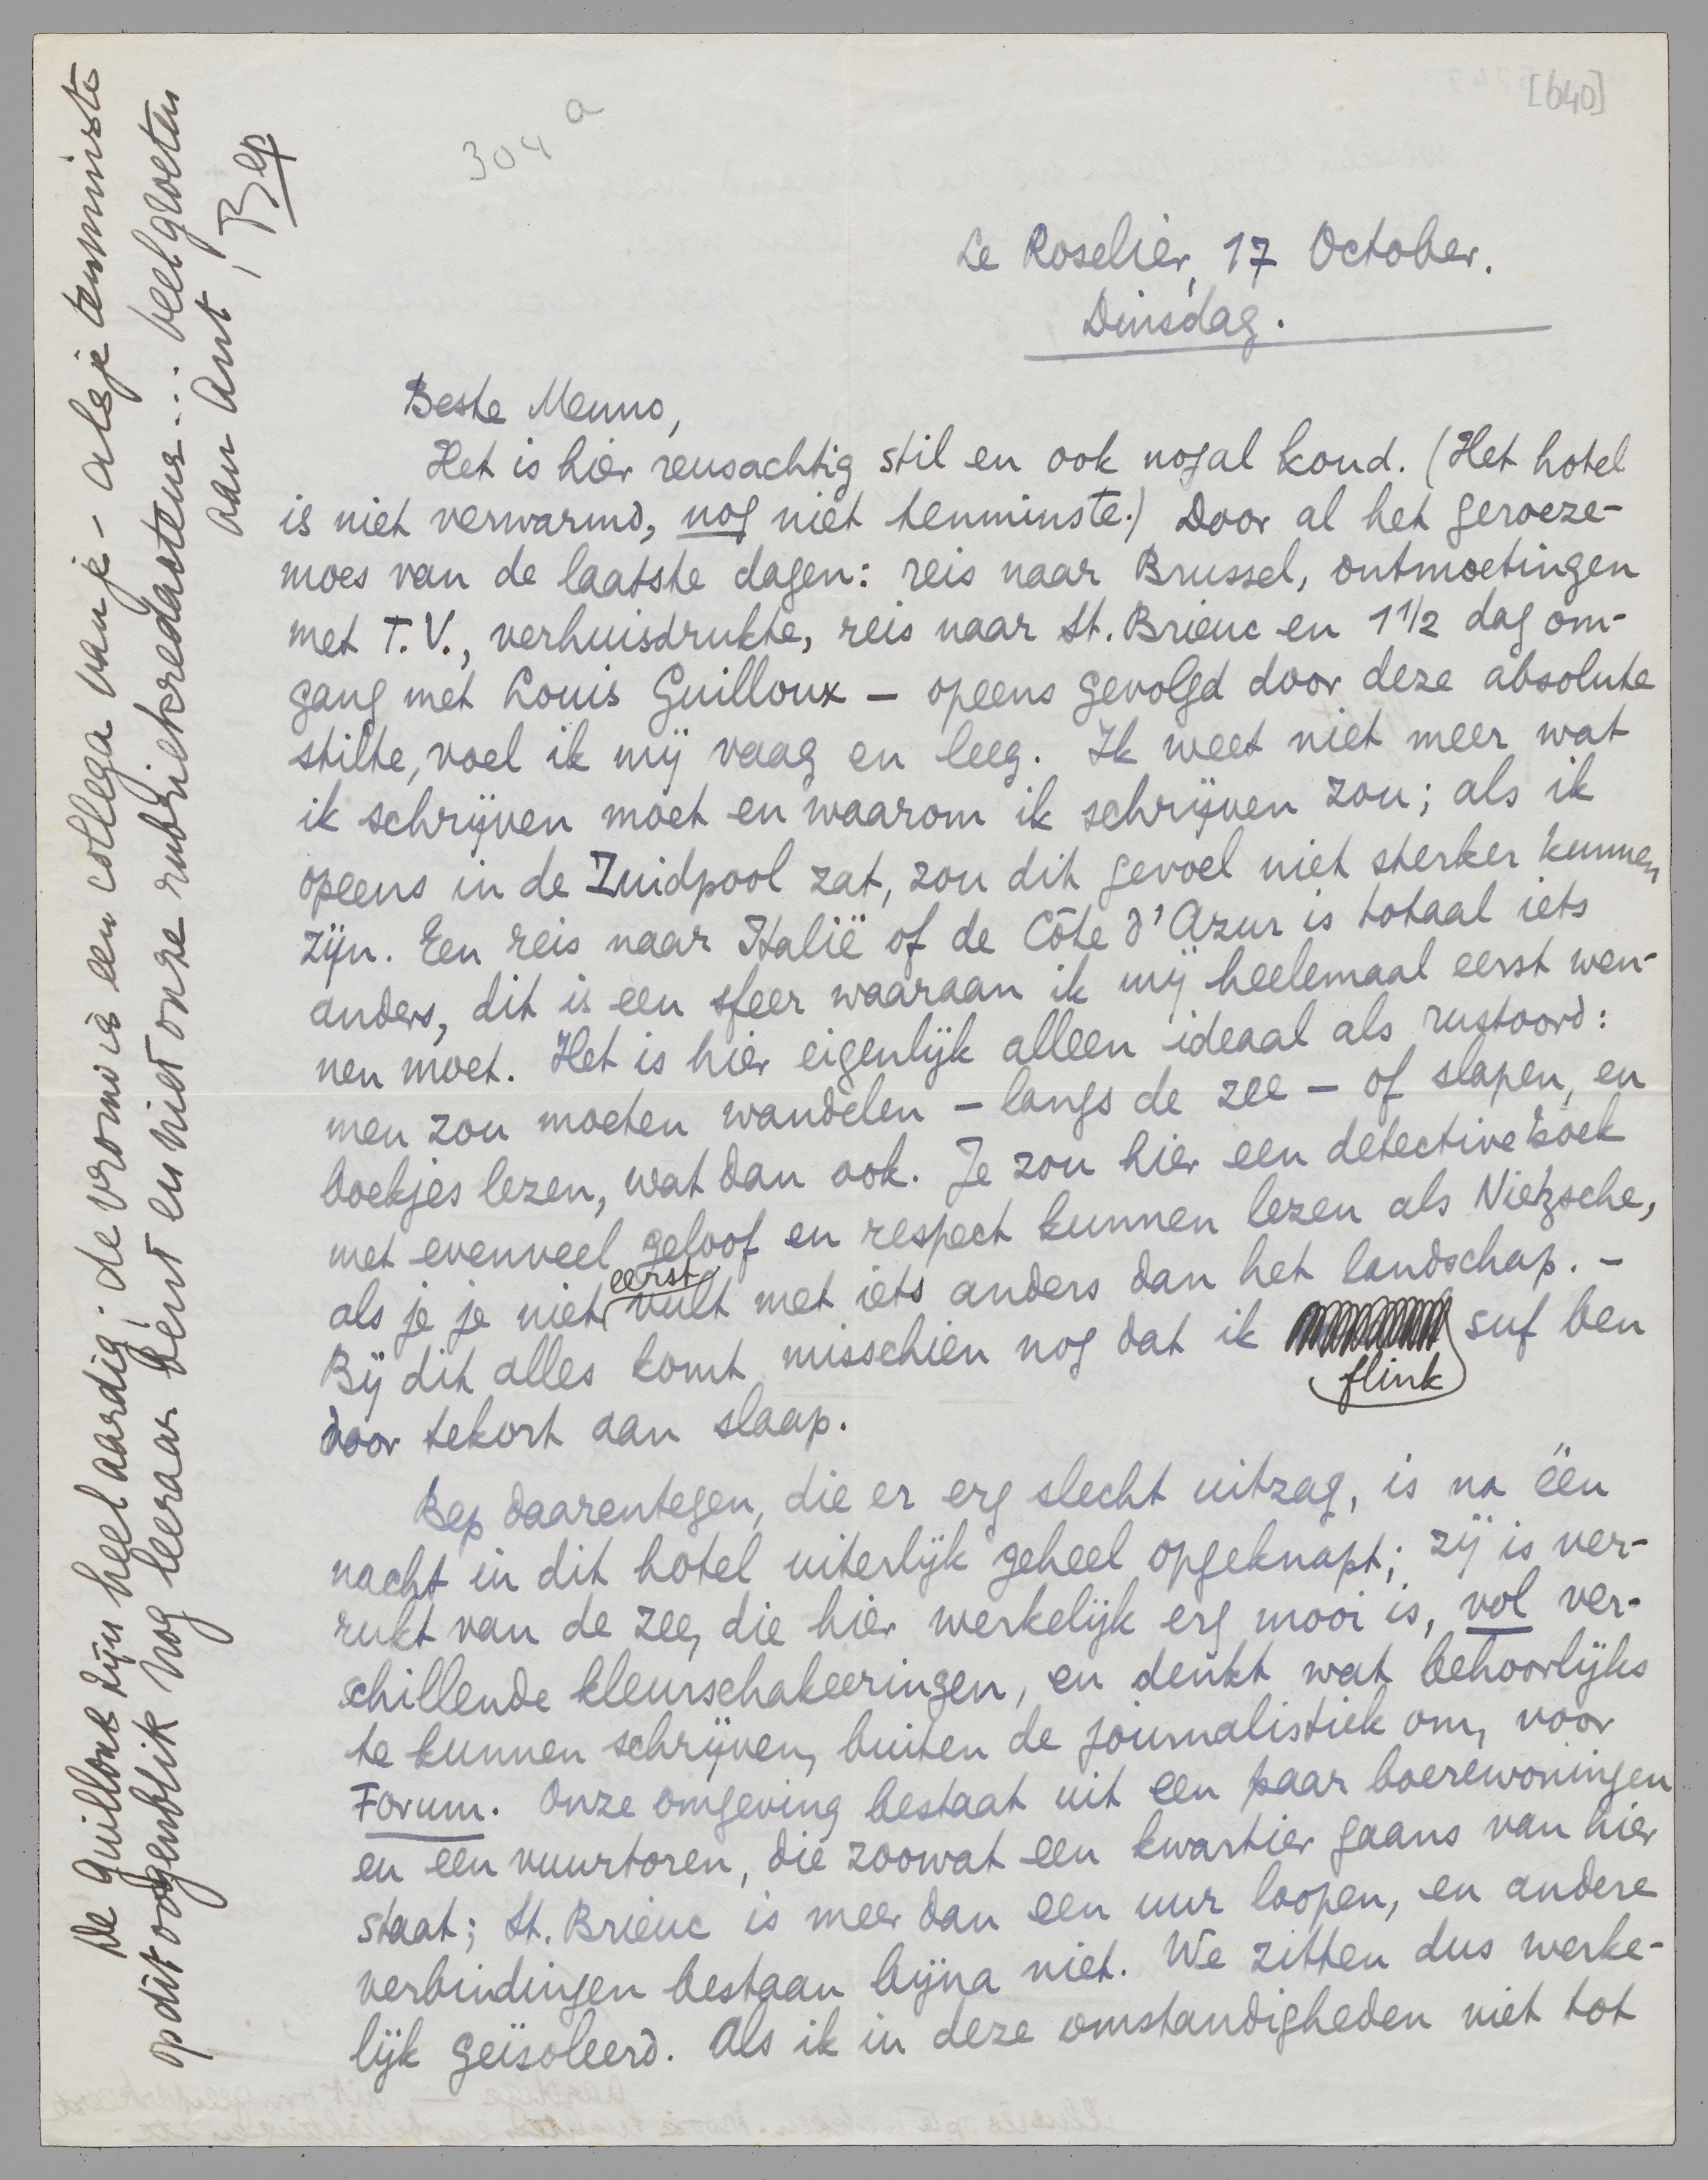 [640]
304 a
Le Roselier, 17 October.
Dinsdag.
Beste Menno,
Het is hier reusachtig stil en ook nogal koud. (Het hotel
is niet verwarmd, nog niet tenminste.) Door al het geroeze-
moes van de laatste dagen: reis naar Brussel, ontmoetingen
met T.V., verhuisdrukte, reis naar St. Brieuc en 1 1/2 dag om-
gang met Louis Guilloux – opeens gevolgd door deze absolute
stilte, voel ik mij vaag en leeg. Ik weet niet meer wat
ik schrijven moet en waarom ik schrijven zou; als ik
opeens in de Zuidpool zat, zou dit gevoel niet sterker kunnen
zijn. Een reis naar Italië of de Côte d'Azur is totaal iets
anders, dit is een sfeer waaraan ik mij heelemaal eerst wen-
nen moet. Het is hier eigenlijk alleen ideaal als rustoord:
men zou moeten wandelen – langs de zee – of slapen, en
boekjes lezen, wat dan ook. Je zou hier een detectiveboek
met evenveel geloof en respect kunnen lezen als Nietzsche,
als je je niet eerst vult met iets anders dan het landschap. –
Bij dit alles komt misschien nog dat ik flink suf ben
door tekort aan slaap.
Bep daarentegen, die er erg slecht uitzag, is na één
nacht in dit hotel uiterlijk geheel opgeknapt; zij is ver-
rukt van de zee, die hier werkelijk erg mooi is, vol ver-
schillende kleurschakeeringen, en denkt wat behoorlijks
te kunnen schrijven, buiten de journalistiek om, voor
Forum. Onze omgeving bestaat uit een paar boerewoningen
en een vuurtoren, die zoowat een kwartier gaans van hier
staat; St. Brieuc is meer dan een uur loopen, en andere
verbindingen bestaan bijna niet. We zitten dus werke-
lijk geïsoleerd. Als ik in deze omstandigheden niet tot
De Guilloux zijn heel aardig; de vrouw is een collega van je – als je tenminste
op dit oogenblik nog leeraar bent en niet onze rubriekredacteur... veel groeten
aan Ant, Bep